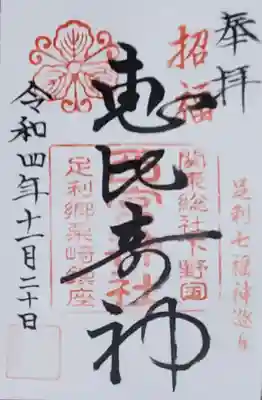 奉拝
招福
足利七福神巡り
恵比寿神
関東総社下野国
西宮神社
足利郷栗崎鎮座
令和四年十一月二十日